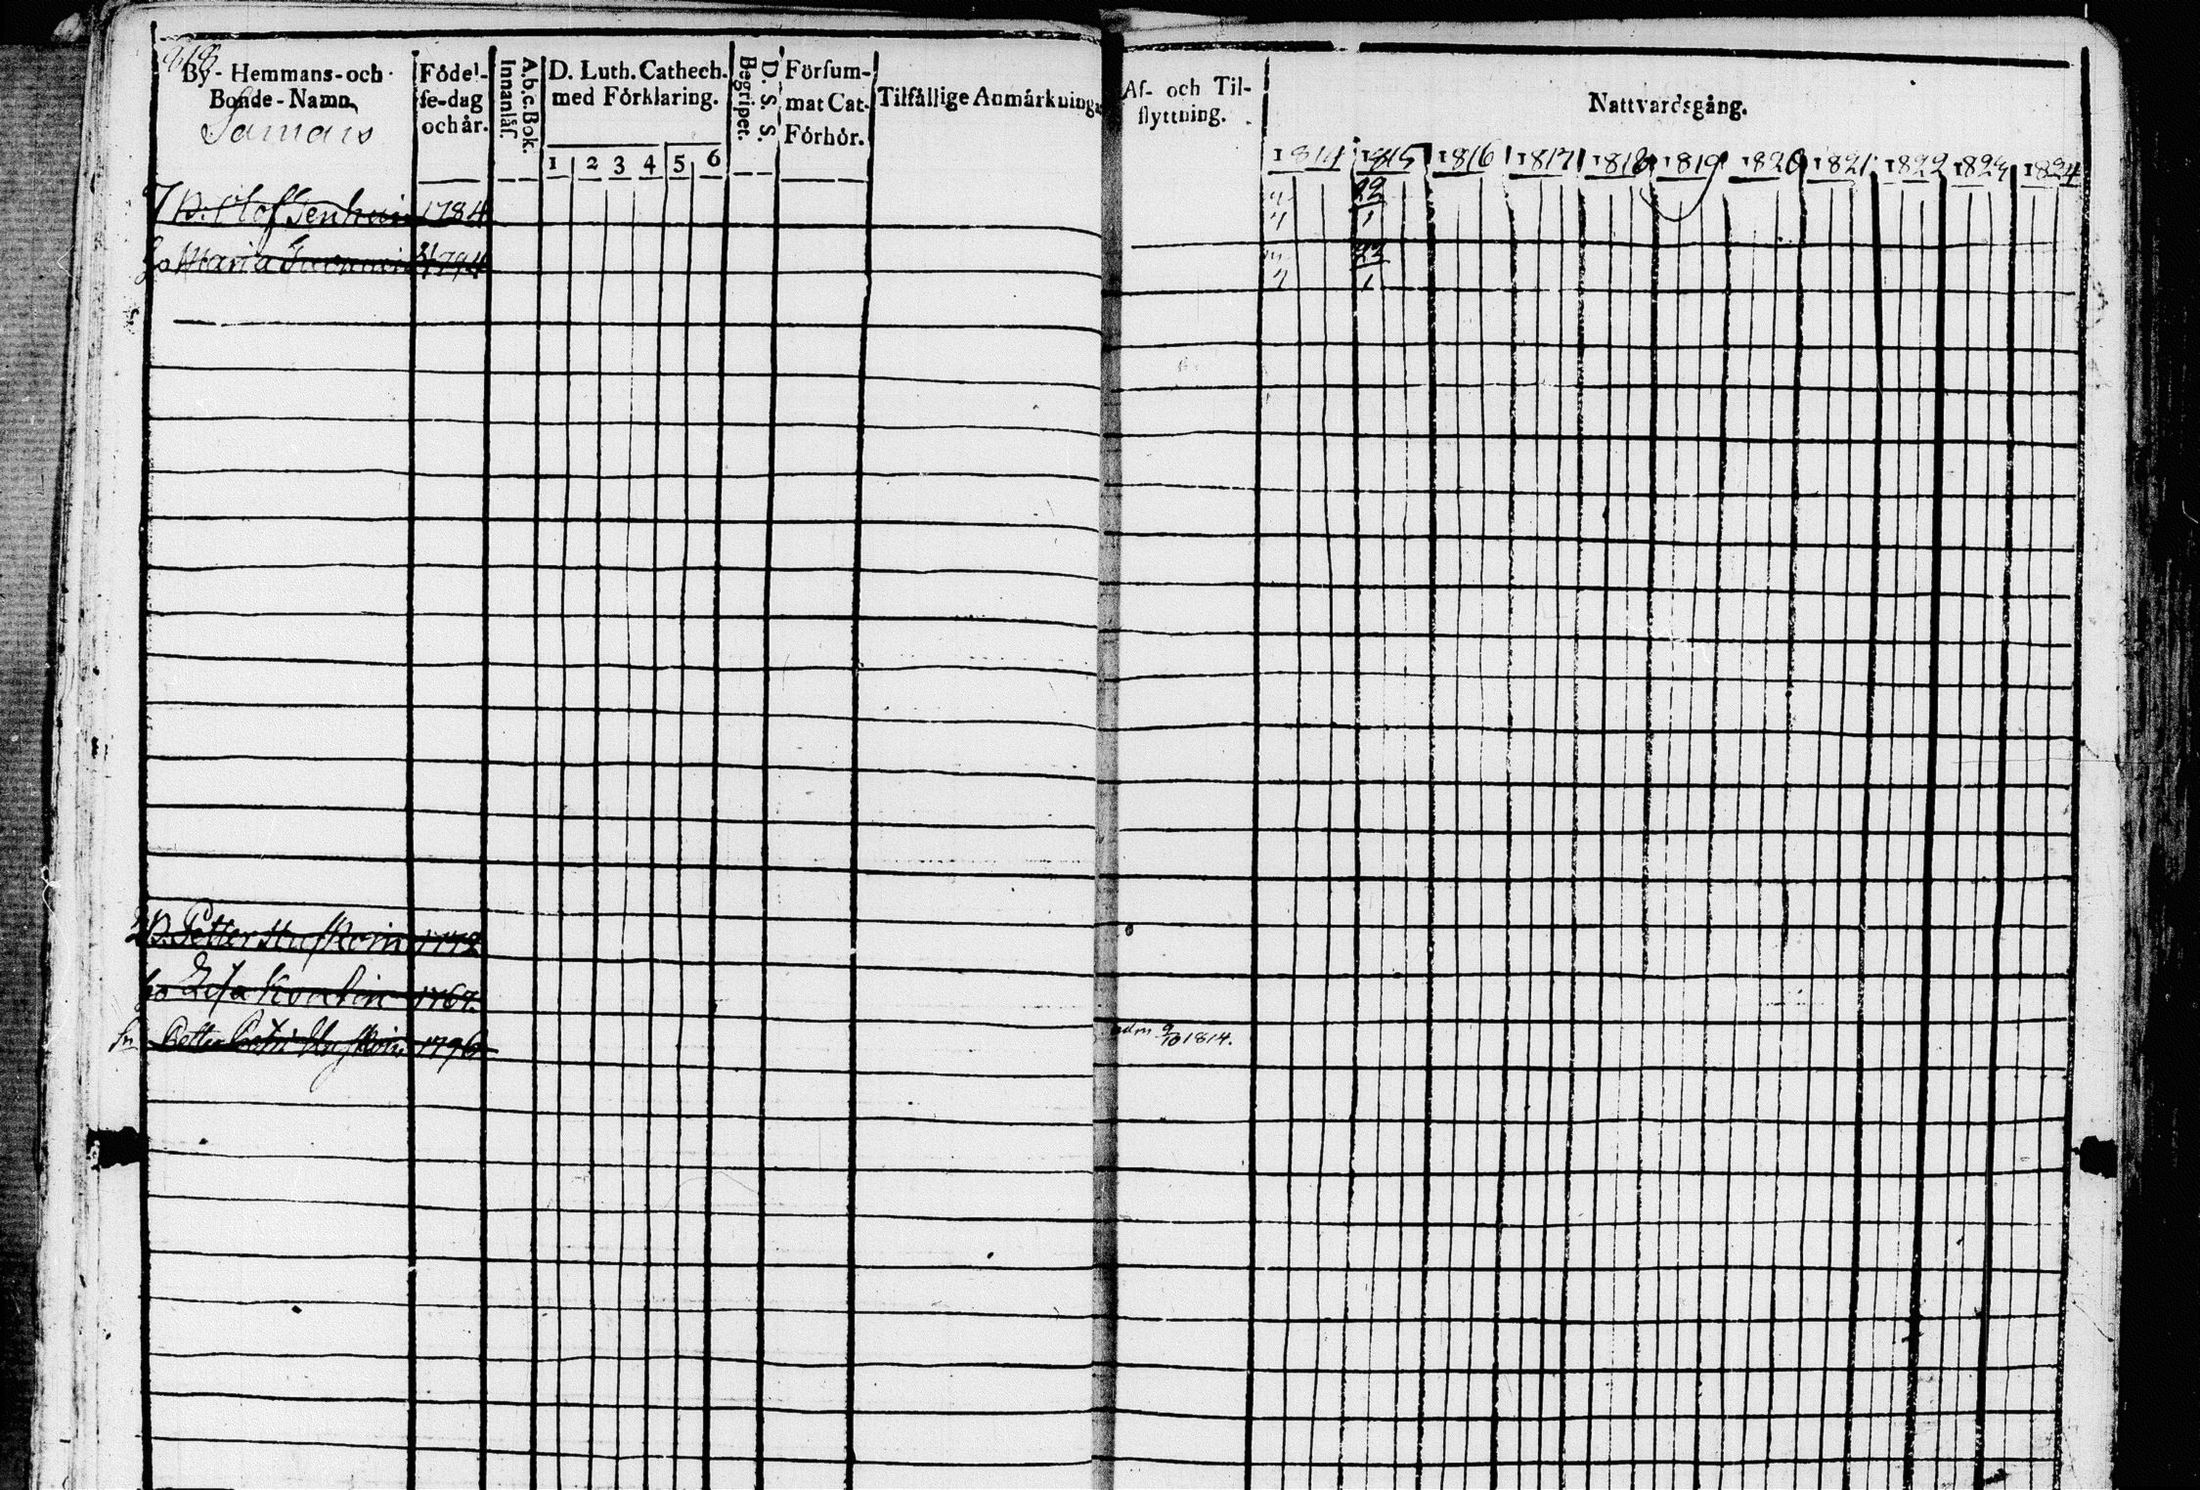 918
By- Hemmans- och
Bonde-Namn
Samans
Födel-
se-dag
och år.
A.b.c.Bok.
Innanläs.
D. Luth. Cathech.
med Förklaring.
1 2 3 4 5 6
D. S. S.
Begripet.
Försum-
mat Cat.
Förhör.
Tilfällige Anmärkning
Af- och Til-
flyttning.
Nattvardsgång.
1814 1815 1816 1817 1818 1819 1820 1821 1822 1823 1824
Olof 1784 22
4 1
Maria 1794 22
4 1
Petter 1772
1767.
Petter 1796 adm 9/10 1814.